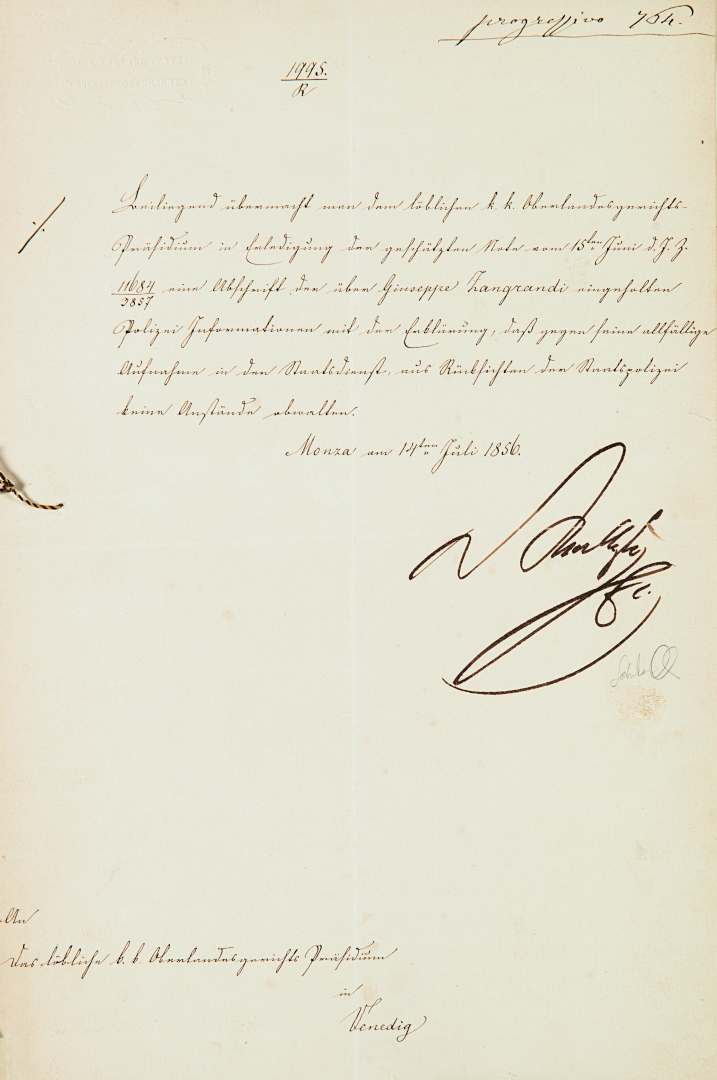 progressivo 754.
1995.
R
Beiliegend übermacht man dem löblichen k. k. Oberlandesgerichts-
Präsidium in Erledigung der geschätzten Note vom 15ten Juni d. J. Z.
11684/3857 eine Abschrift der über Giuseppe Zangrandi eingeholten
Polizei Informationen mit der Erklärung, daß gegen seine allfällige
Aufnahme in den Staatsdienst, aus Rücksichten der Staatspolizei
keine Anstände obwalten.
Monza am 14ten Juli 1856.
An
Das löbliche k. k. Oberlandesgerichts Präsidium
in
Venedig